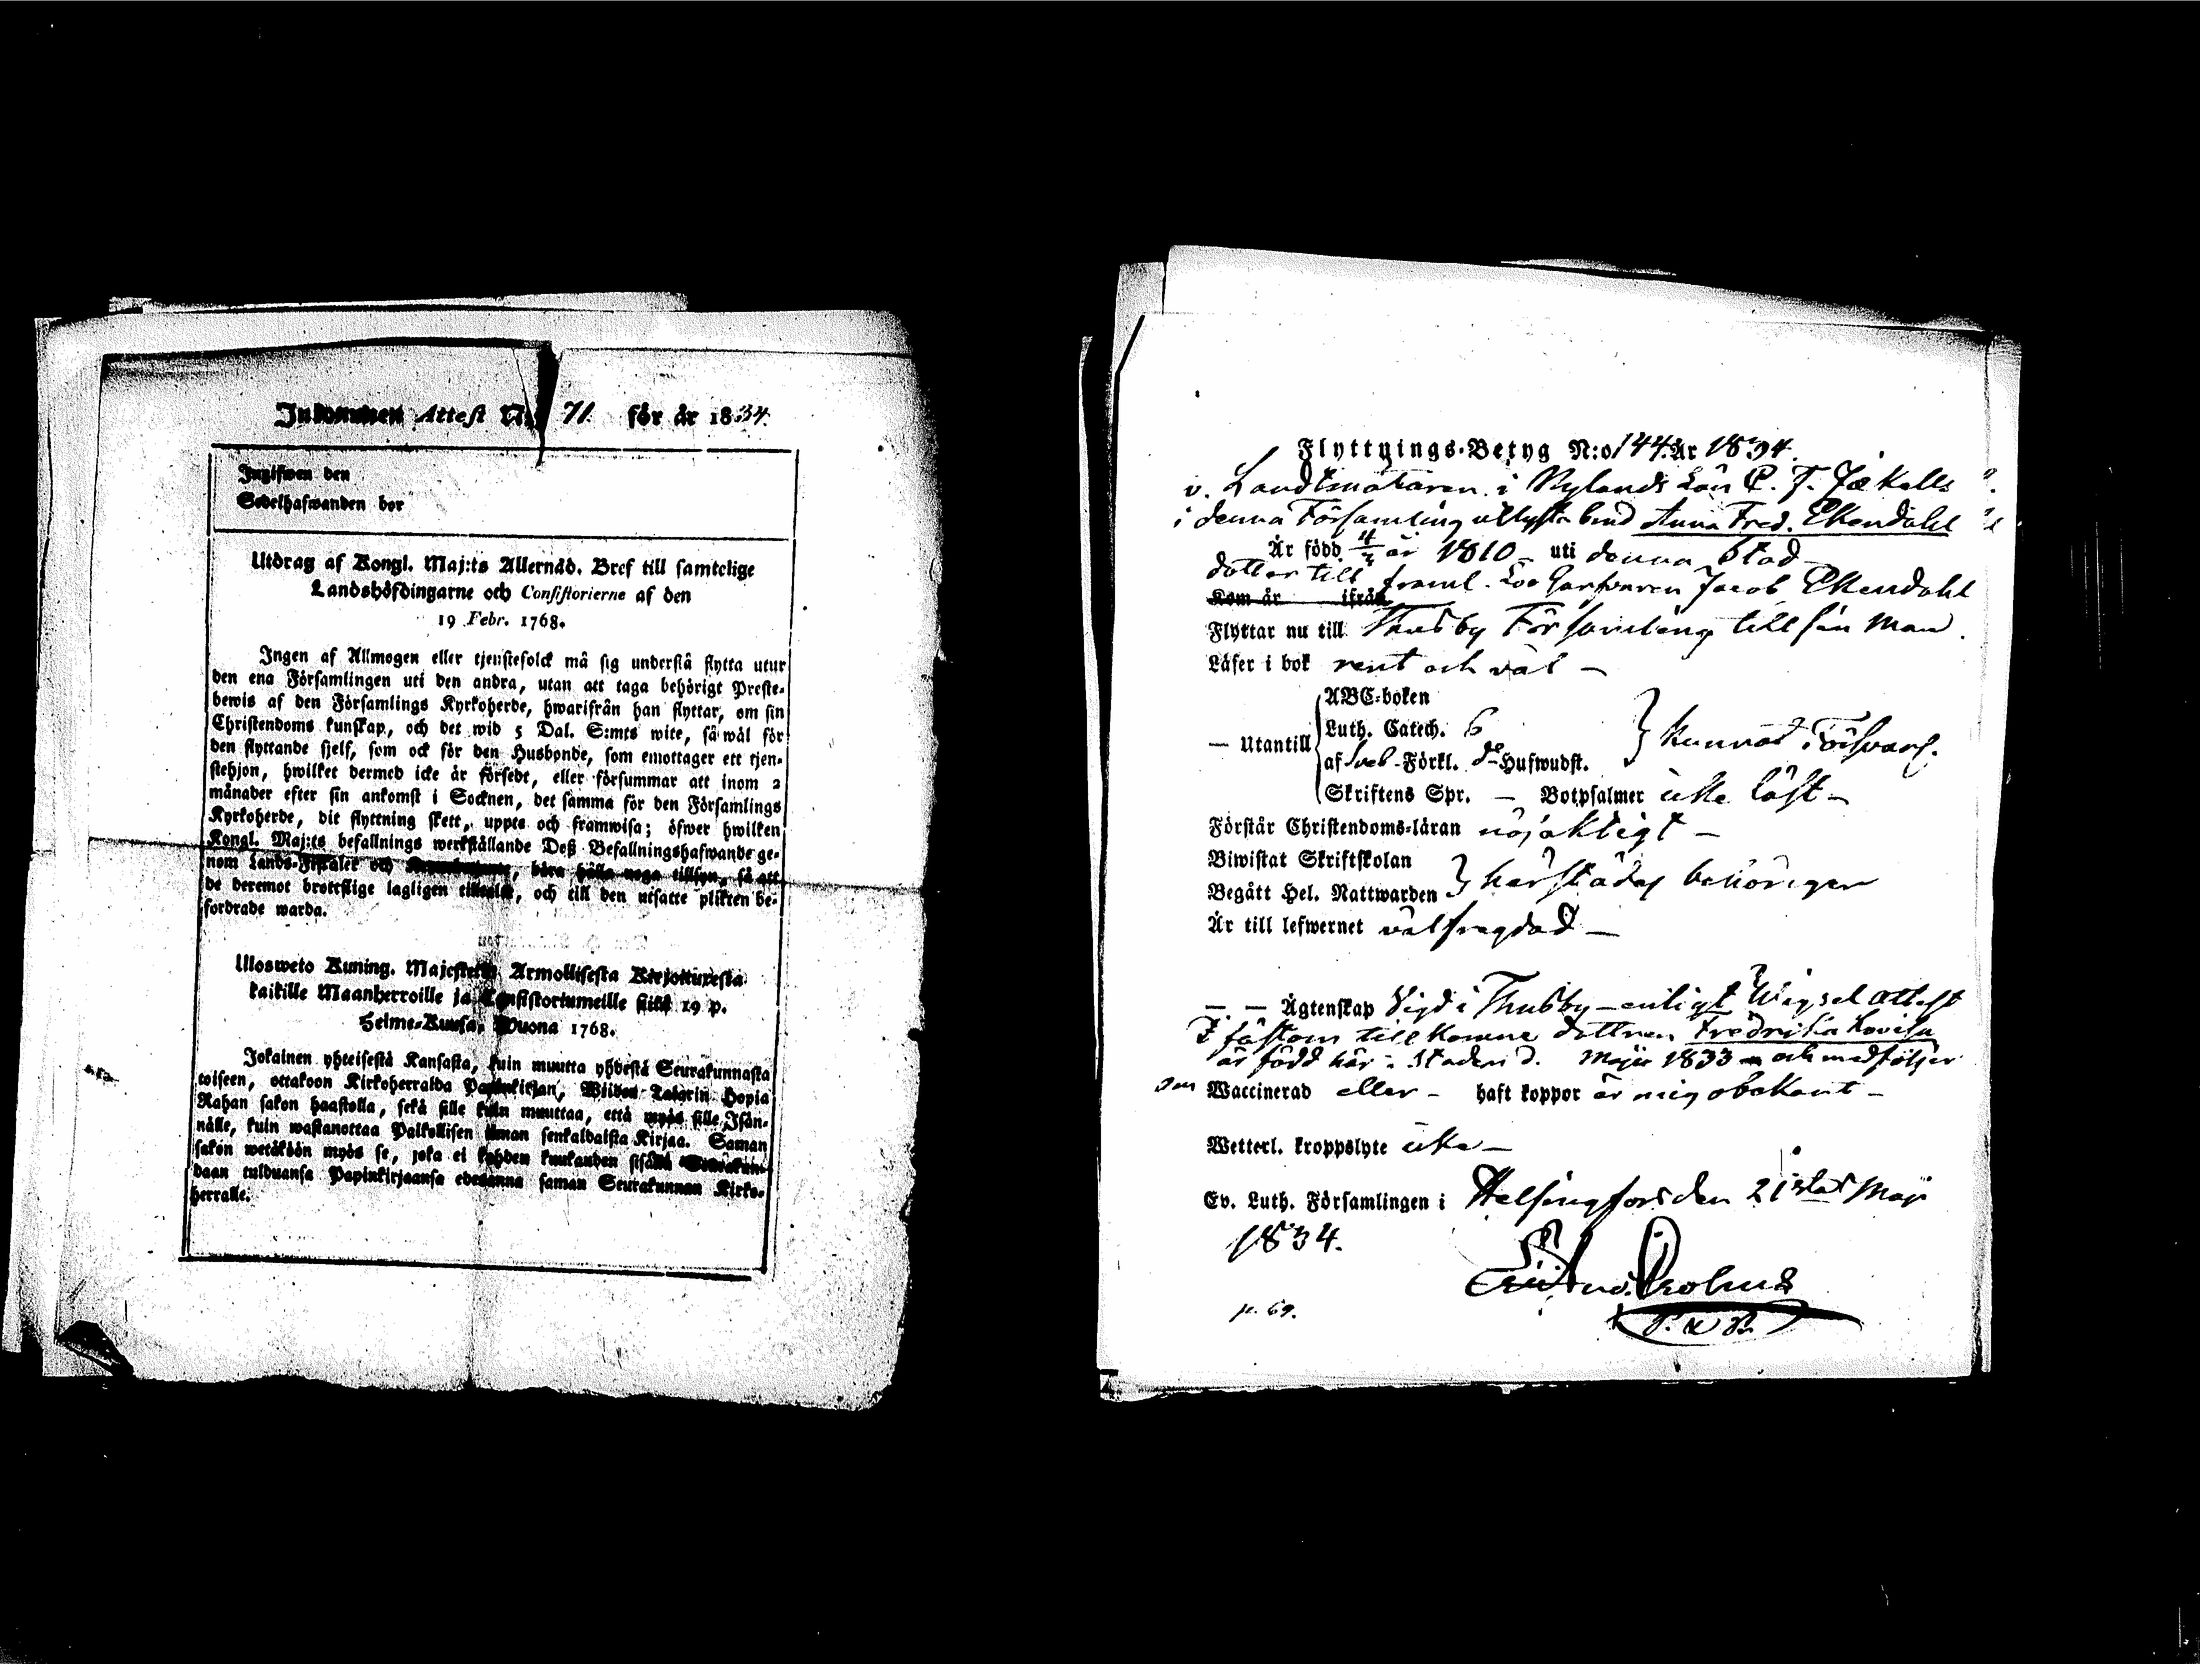 Inkommen Attest N:o 71. för år 1834.
Ingifwen den
Sedelhafwanden bor
Utdrag af Kongl. Maj:ts Allernåd. Bref till samtelige
Landshöfdingarne och Consistorierne af den
19 Febr. 1768.
Ingen af Allmogen eller tjenstefolck må sig understå flytta utur
den ena Församlingen uti den andra, utan att taga behörigt Preste-
bewis af den Församlings Kyrkoherde, hwarifrån han flyttar, om sin
Christendoms kunskap, och det wid 5 Dal. S:mts wite, så wäl för
den flyttande sjelf, som ock för den Husbonde, som emottager ett tjen-
stehjon, hwilket dermed icke är försedt, eller försummar att inom 2
månader efter sin ankomst i Socknen, det samma för den Församlings
Kyrkoherde, dit flyttning skett, uppte och framwisa; öfwer hwilken
Kongl. Maj:ts befallnings werkställande Deß Befallningshafwande ge-
nom Lands-Fiskaler och , böra hålla noga tillsyn, så att
de deremot brotslige lagligen tilltalas, och till den utsatte plikten be-
fordrade warda.
Ulosweto Kuning. Majestetin Armollisesta Kirjoituresta
kaikille Maanherroille ja Consistoriumeille siitä 19 p.
Helme-Kuusa, Wuona 1768.
Jokainen yhteisestä Kansasta, kuin muutta yhdestä Seurakunnasta
toiseen, ottakoon Kirkoherralda Papinkirjan, Wiiden Talarin Hopia
Rahan sakon haastolla, sekä sille kuin muuttaa, että myös sille Isän-
nälle, kuin wastanottaa Palkollisen ilman senkaldaista Kirjaa. Saman
sakon wetäköön myös se, joka ei kahden kuukauden sisällä Seurakun-
daan tulduansa Papinkirjaansa edesanna saman Seurakunnan Kirko-
herralle.
Flyttnings-Betyg N:o 144. År 1834.
v. Landtmätaren i Nylands Län C. F. Jækells
i denna Församling utlysta brud Anna Fred. Ekendahl
År född 4/ år 1810 - uti denna Stad
dotter till framl. Jacob Ekendahl
Kom år ifrån
Flyttar nu till Thusby Församling till sin man.
Läser i bok rent och väl -
— Utantill
ABC-boken
Luth. Catech. 6
af Sveb. Förkl. de Hufwudst.
} kunnat Försvarl.
Skriftens Spr. — Botpsalmer icke läst -
Förstår Christendoms-läran nöjaktigt -
Biwistat Skriftskolan
Begått Hel. Nattwarden
} härstädes behörigen
Är till lefwernet välfregdad -
— — Ägtenskap Vigd i Thusby - enligt Wigsel attest
fästom tillkomne dottren Fredrika Lovisa
är född här i Staden d. Maji 1833 och medföljer
Waccinerad eller - haft koppor är mig obekant -
Wetterl. kroppslyte icke -
Ev. Luth. Församlingen i Helsingfors den 21sta Maji
1834.
p. 69.